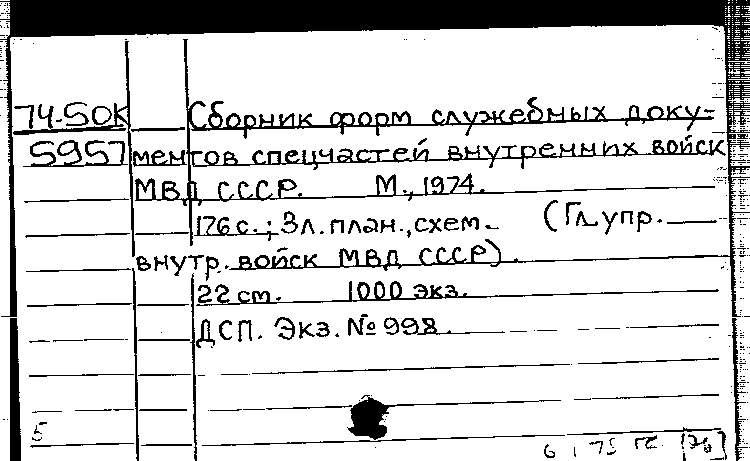 74-50К Сборник форм служебных доку-
5957 ментов спецчастей внутренних войск
МВД СССР. М., 1974.
176 с.; 3 л. план., схем. (Гл. упр.
внутр. войск МВД СССР).
22 см. 1000 экз.
ДСП. Экз. № 998.
5
[76]